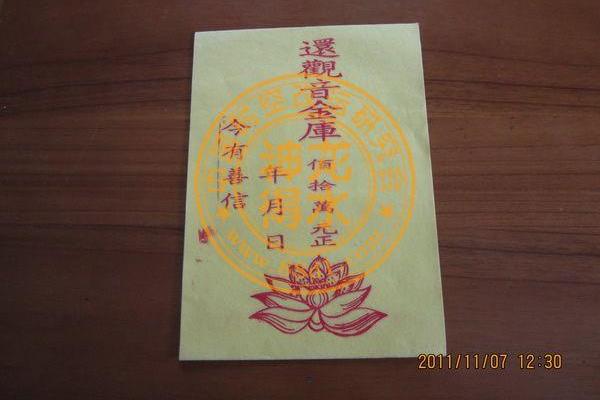 還觀音金庫
佰拾萬元正
年月日
今有善信
2011/11/07 12:30